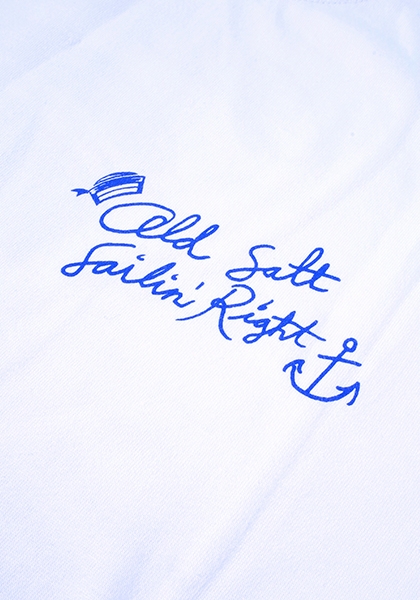 Old Salt
Sailin' Right